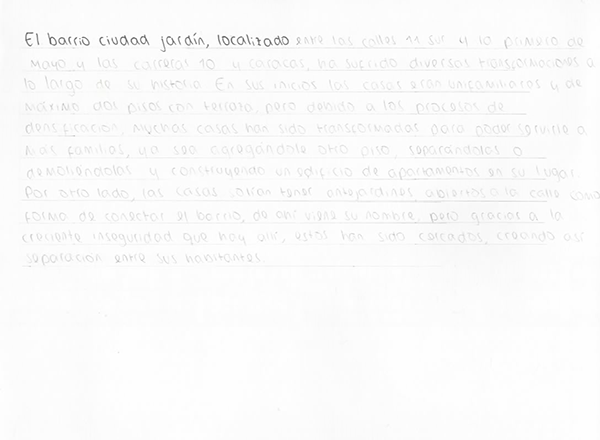 El barrio ciudad jardín, localizado entre las calles 11 sur y la primero de
mayo y las carreras 10 y caracas, ha sufrido diversas transformaciones a
lo largo de su historia. En sus inicios las casas eran unifamiliares y de
máximo dos pisos con terraza, pero debido a los procesos de
densificación, muchas casas han sido transformadas para poder servirle a
más familias, ya sea agregándole otro piso, separándolas o
demoliéndolas y construyendo un edificio de apartamentos en su lugar.
Por otro lado, las casas tener antejardines abiertos a la calle como
forma de conectar el barrio, de ahí viene su nombre, pero gracias a la
creciente inseguridad que hay allí, estos han sido cercados, creando así
separación entre sus habitantes